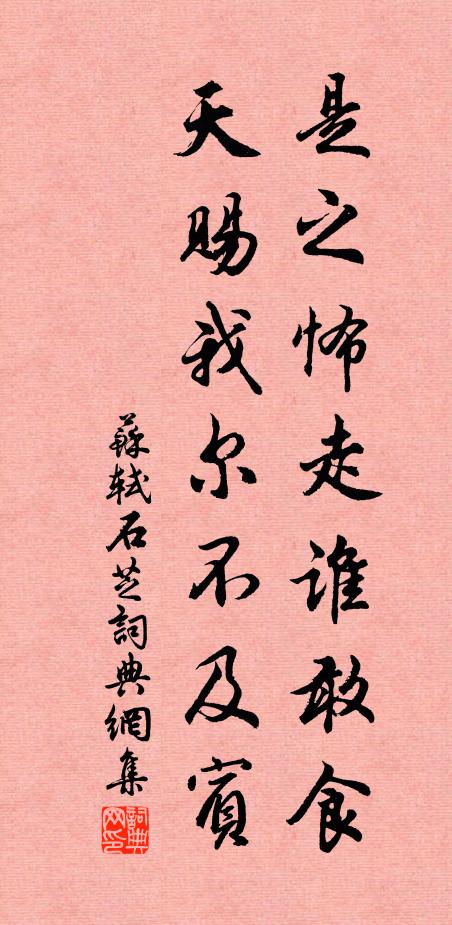 是之怖走誰敢食
天賜我尔不及賓
蘇軾石芝詞典網集
詞典
网印